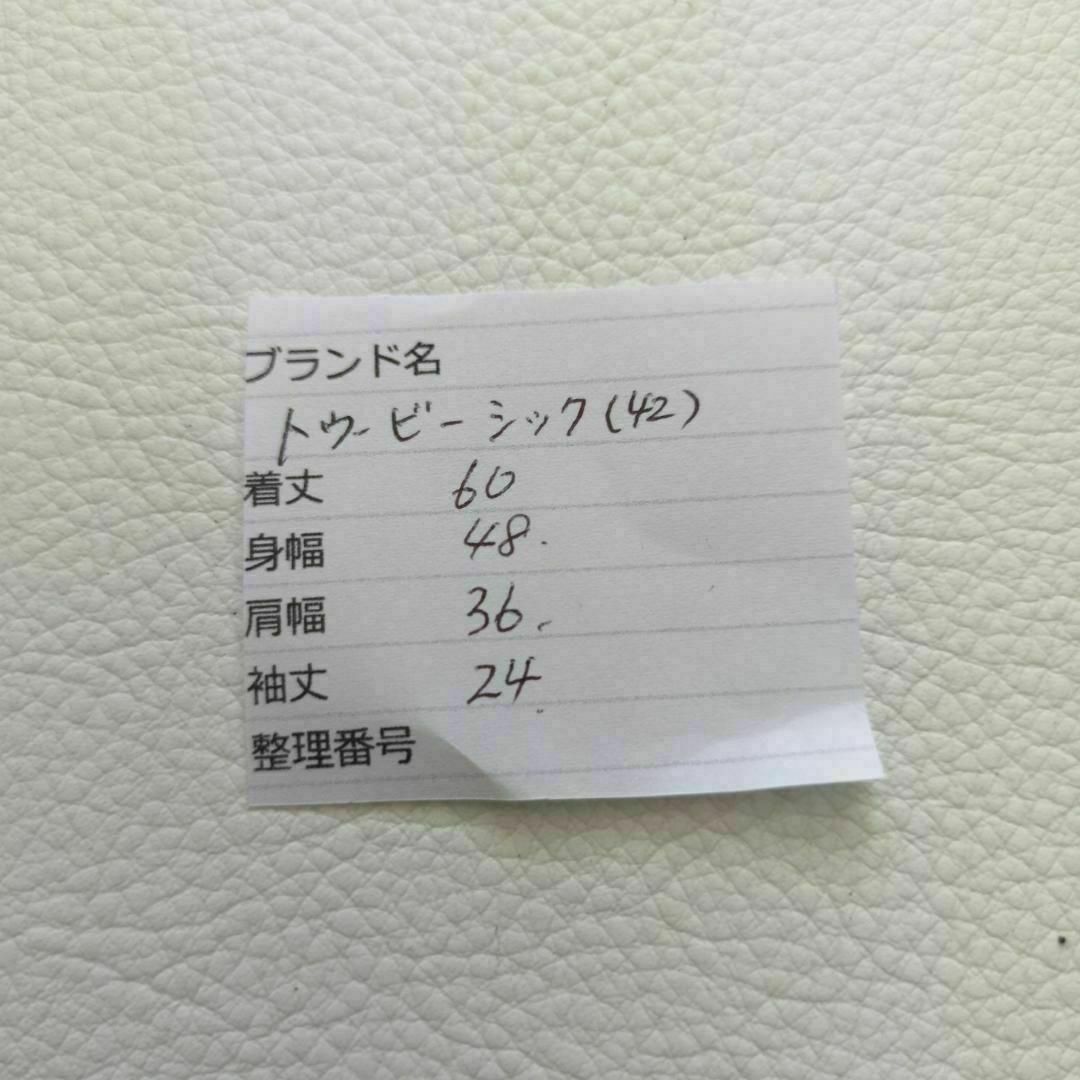 ブランド名
トゥービーシック(42)
着丈 60
身幅 48.
肩幅 36.
袖丈 24.
整理番号